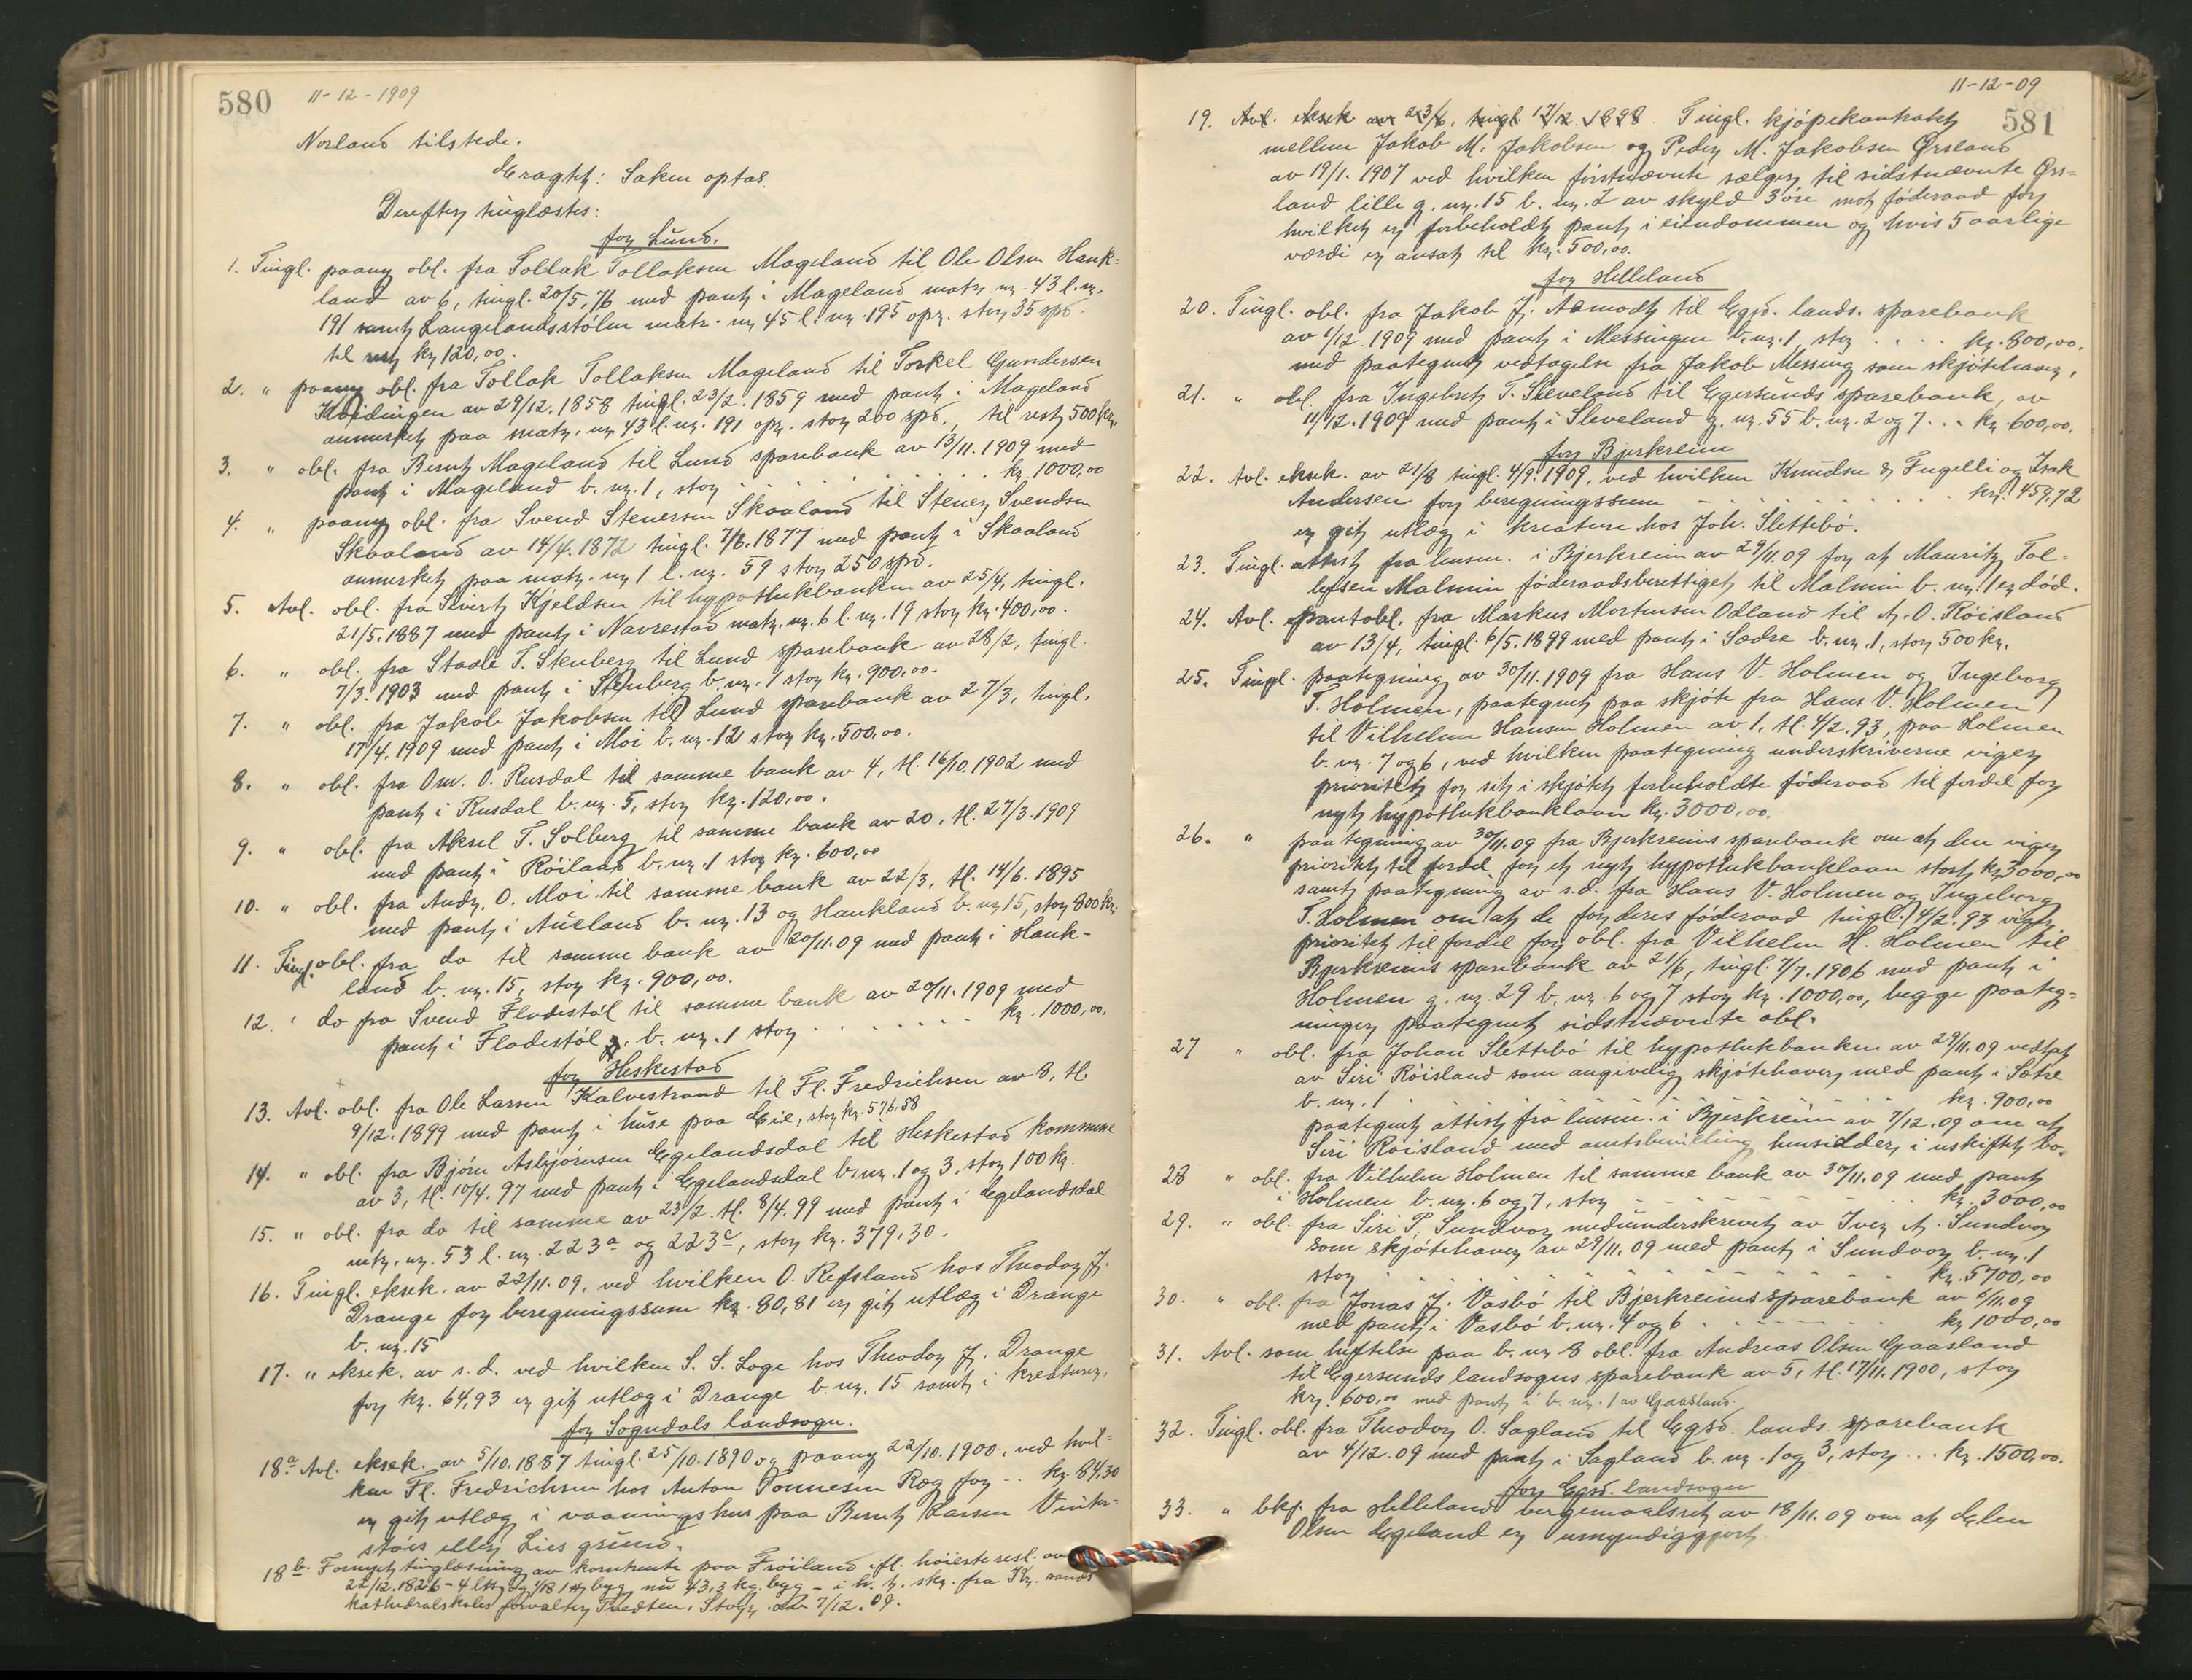 580 11-12-1909
Norland tilstede.
Eragtet: Saken optas.
Derefter tinglæstes:
for Lund.
1. Tingl. paany obl. fra Tollak Tollaksen Mageland til Ole Olsen Hauk-
land av 6, tingl. 20/5. 76 med pant i Mageland matr. nr. 43 l. nr.
191 samt Langelandsstølen matr. nr 45 l. nr. 195 opr. stor 35 spd.
til rest kr 120,00.
2. " paany obl. fra Tollak Tollaksen Mageland til Torkel Gundersen
Kvidingen av 29/12. 1858 tingl. 23/2. 1859 med pant i Mageland
anmerket paa matr. nr 43 l. nr. 191 opr. stor 200 spd., til rest 500 kr.
3. " obl. fra Bernt Mageland til Lund sparebank av 13/11. 1909 med
pant i Mageland b. nr. 1, stor . . . . . . . kr. 1000,00
4. " paany obl. fra Svend Stenersen Skaaland til Stener Svendsen
Skaaland av 14/4. 1872 tingl. 7/6. 1877 med pant i Skaaland
anmerket paa matr. nr 1 l. nr. 59 stor 250 spd.
5. Avl. obl. fra Sivert Kjeldsen til hypothekbanken av 25/4, tingl.
21/5. 1887 med pant i Navrestad matr. nr. 6 l. nr. 19 stor kr. 400,00.
6. " obl. fra Staale T. Stenberg til Lund sparebank av 28/2, tingl.
7/3. 1903 med pant i Stenberg b. nr. 1 stor kr. 900,00.
7. " obl. fra Jakob Jakobsen til Lund sparebank av 27/3, tingl.
17/4. 1909 med pant i Moi b. nr. 12 stor kr. 500,00.
8. " obl. fra Om. O. Rusdal til samme bank av 4, tl. 16/10. 1902 med
pant i Rusdal b. nr. 5, stor kr. 120,00.
9. " obl. fra Aksel T. Solberg til samme bank av 20. tl. 27/3. 1909
med pant i Röiland b. nr. 1 stor kr. 600,00
10. " obl. fra Andr. O. Moi til samme bank av 22/3, tl. 14/6. 1895
med pant i Aueland b. nr. 13 og Haukland b. nr 15, stor 800 kr.
11. Tingl. obl. fra do til samme bank av 20/11. 09 med pant i Hauk-
land b. nr. 15, stor kr. 900,00.
12. " do fra Svend Flodestöl til samme bank av 20/11. 1909 med
pant i Flodestöl b. nr. 1 stor . . . . . . . kr. 1000,00.
for Heskestad
13. Avl. obl. fra Ole Larsen Kalvestrand til Fl. Fredrichsen av 8, tl.
9/12. 1899 med pant i huse paa Eie, stor kr. 576,58
14. " obl. fra Bjørn Asbjørnsen Egelandsdal til Heskestad kommune
av 3, tl. 10/4. 97 med pant i Egelandsdal b. nr. 1 og 3, stor 100 kr.
15. " obl. fra do til samme av 23/2. tl. 8/4. 99 med pant i Egelandsdal
mtr. nr. 53 l. nr. 223a og 223c, stor kr. 379,30.
16. Tingl. eksek. av 22/11. 09, ved hvilken O. Refsland hos Theodor J.
Drange for beregningssum kr. 80,81 er git utlæg i Drange
b. nr. 15
17. " eksek. av s. d. ved hvilken S. S. Loge hos Theodor J. Drange
for kr. 64,93 er git utlæg i Drange b. nr. 15 samt i kreaturer.
for Sogndals landsogn.
18a. Avl. eksek. av 5/10. 1887 tingl. 25/10. 1890 og paany 22/10. 1900, ved hvil-
ken Fl. Fredrichsen hos Anton Tønnesen Ræg for .. kr. 84,30
er git utlæg i vaaningshus paa Bernt Larsen Vinter-
støis eller Lies grund.
18b. Fornyet tinglæsning av korntiende paa Fröiland ifl. høieste resl. av
22/12. 1826 - byg nu 43,3 kg. byg - fra Kr. sands
kathedralskoles forvalter Tvedten. av 7/12. 09.
11-12-09
581
19. Avl. eksek av 23/6. tingl. 17/2. 1898. Tingl. kjøpekontrakt
mellem Jakob M. Jakobsen og Peder M. Jakobsen Ørsland
av 19/1. 1907 ved hvilken førstnævnte sælger til sidstnævnte Ørs-
land lille g. nr. 15 b. nr. 2 av skyld 3 øre mot føderaad for
hvilket er forbeholdt pant i eiendommen og hvis 5 aarlige
værdi er ansat til kr. 500,00.
for Helleland
20. Tingl. obl. fra Jakob J. Aamodt til Egsd. lands. sparebank
av 1/12. 1909 med pant i Messingen b. nr. 1 stor . . . . kr. 800,00.
med paategnet vedtagelse fra Jakob Messing som skjøtehaver.
21. " obl. fra Ingebret T. Sleveland til Egersunds sparebank, av
11/12. 1909 med pant i Sleveland g. nr. 55 b. nr. 2 og 7 . . . kr. 600,00.
for Bjerkreim
22. Avl. eksek. av 21/8 tingl. 4/9. 1909, ved hvilken Knudsen & Fugelli og Isak
Andersen for beregningssum . . . . . . . kr. 459,72
er git utlæg i kreaturer hos Joh. Slettebö.
23. Tingl. attest fra lensm. i Bjerkreim av 29/11. 09 for at Mauritz Tol-
lefsen Malmin føderaadsberettiget til Malmin b. nr. 1 er død.
24. Avl. pantobl. fra Markus Mortensen Odland til A. O. Röisland
av 13/4, tingl. 6/5. 1899 med pant i Sædre b. nr. 1, stor 500 kr.
25. Tingl. paategning av 30/11. 1909 fra Hans V. Holmen og Ingeborg
T. Holmen, paategnet paa skjøte fra Hans V. Holmen
til Vilhelm Hansen Holmen av 1. tl. 4/2. 93, paa Holmen
b. nr. 7 og 6, ved hvilken paategning underskriverne viger
prioritet for sit i skjøtet forbeholdte føderaad til fordel for
nyt hypothekbanklaan kr. 3000,00.
26. " paategning av 30/11. 09 fra Bjerkreims sparebank om at den viger
prioritet til fordel for et nyt hypothekbanklaan stort kr 3000,00
samt paategning av s. d. fra Hans V. Holmen og Ingeborg
T. Holmen om at de for deres føderaad tingl. 4/2. 93 viger
prioritet til fordel for obl. fra Vilhelm H. Holmen til
Bjerkreims sparebank av 21/6, tingl. 7/7. 1906 med pant i
Holmen g. nr. 29 b. nr 6 og 7 stor kr. 1000,00, begge paateg-
ninger paategnet sidstnævnte obl.
27 " obl. fra Johan Slettebö til hypothekbanken av 29/11. 09 vedtat
av Siri Röisland som angivelig skjøtehaver med pant i Sætre
b. nr. 1 . . . . . . . kr. 900,00
paategnet attest fra lensm. i Bjerkreim av 7/12. 09 om at
Siri Röisland med amtsbevilling hensidder i uskiftet bo.
28 " obl. fra Vilhelm Holmen til samme bank av 30/11. 09 med pant
i Holmen b. nr. 6 og 7, stor . . . . . . . kr. 3000,00
29. " obl. fra Siri P. Sundvor medunderskrevet av Iver A. Sundvor
som skjøtehaver av 29/11. 09 med pant i Sundvor b. nr. 1
stor . . . . . . . kr. 5700,00
30. " obl. fra Jonas J. Vasbö til Bjerkreims sparebank av 6/11. 09
med pant i Vasbö b. nr. 4 og 6 . . . . . . . kr 1000,00
31. Avl. som heftelse paa b. nr 8 obl. fra Andreas Olsen Gaasland
til Egersunds landsogns sparebank av 5, tl. 17/11. 1900, stor
kr. 600,00 med pant i b. nr. 1 av Gaasland.
32. Tingl. obl. fra Theodor O. Sagland til Egsd. lands. sparebank
av 4/12. 09 med pant i Sagland b. nr. 1 og 3, stor . . . kr. 1500,00.
for Egsd. landsogn
33. " bkj. fra Helleland vergemaalsret av 18/11. 09 om at Elen
Olsen Egeland er umyndiggjort